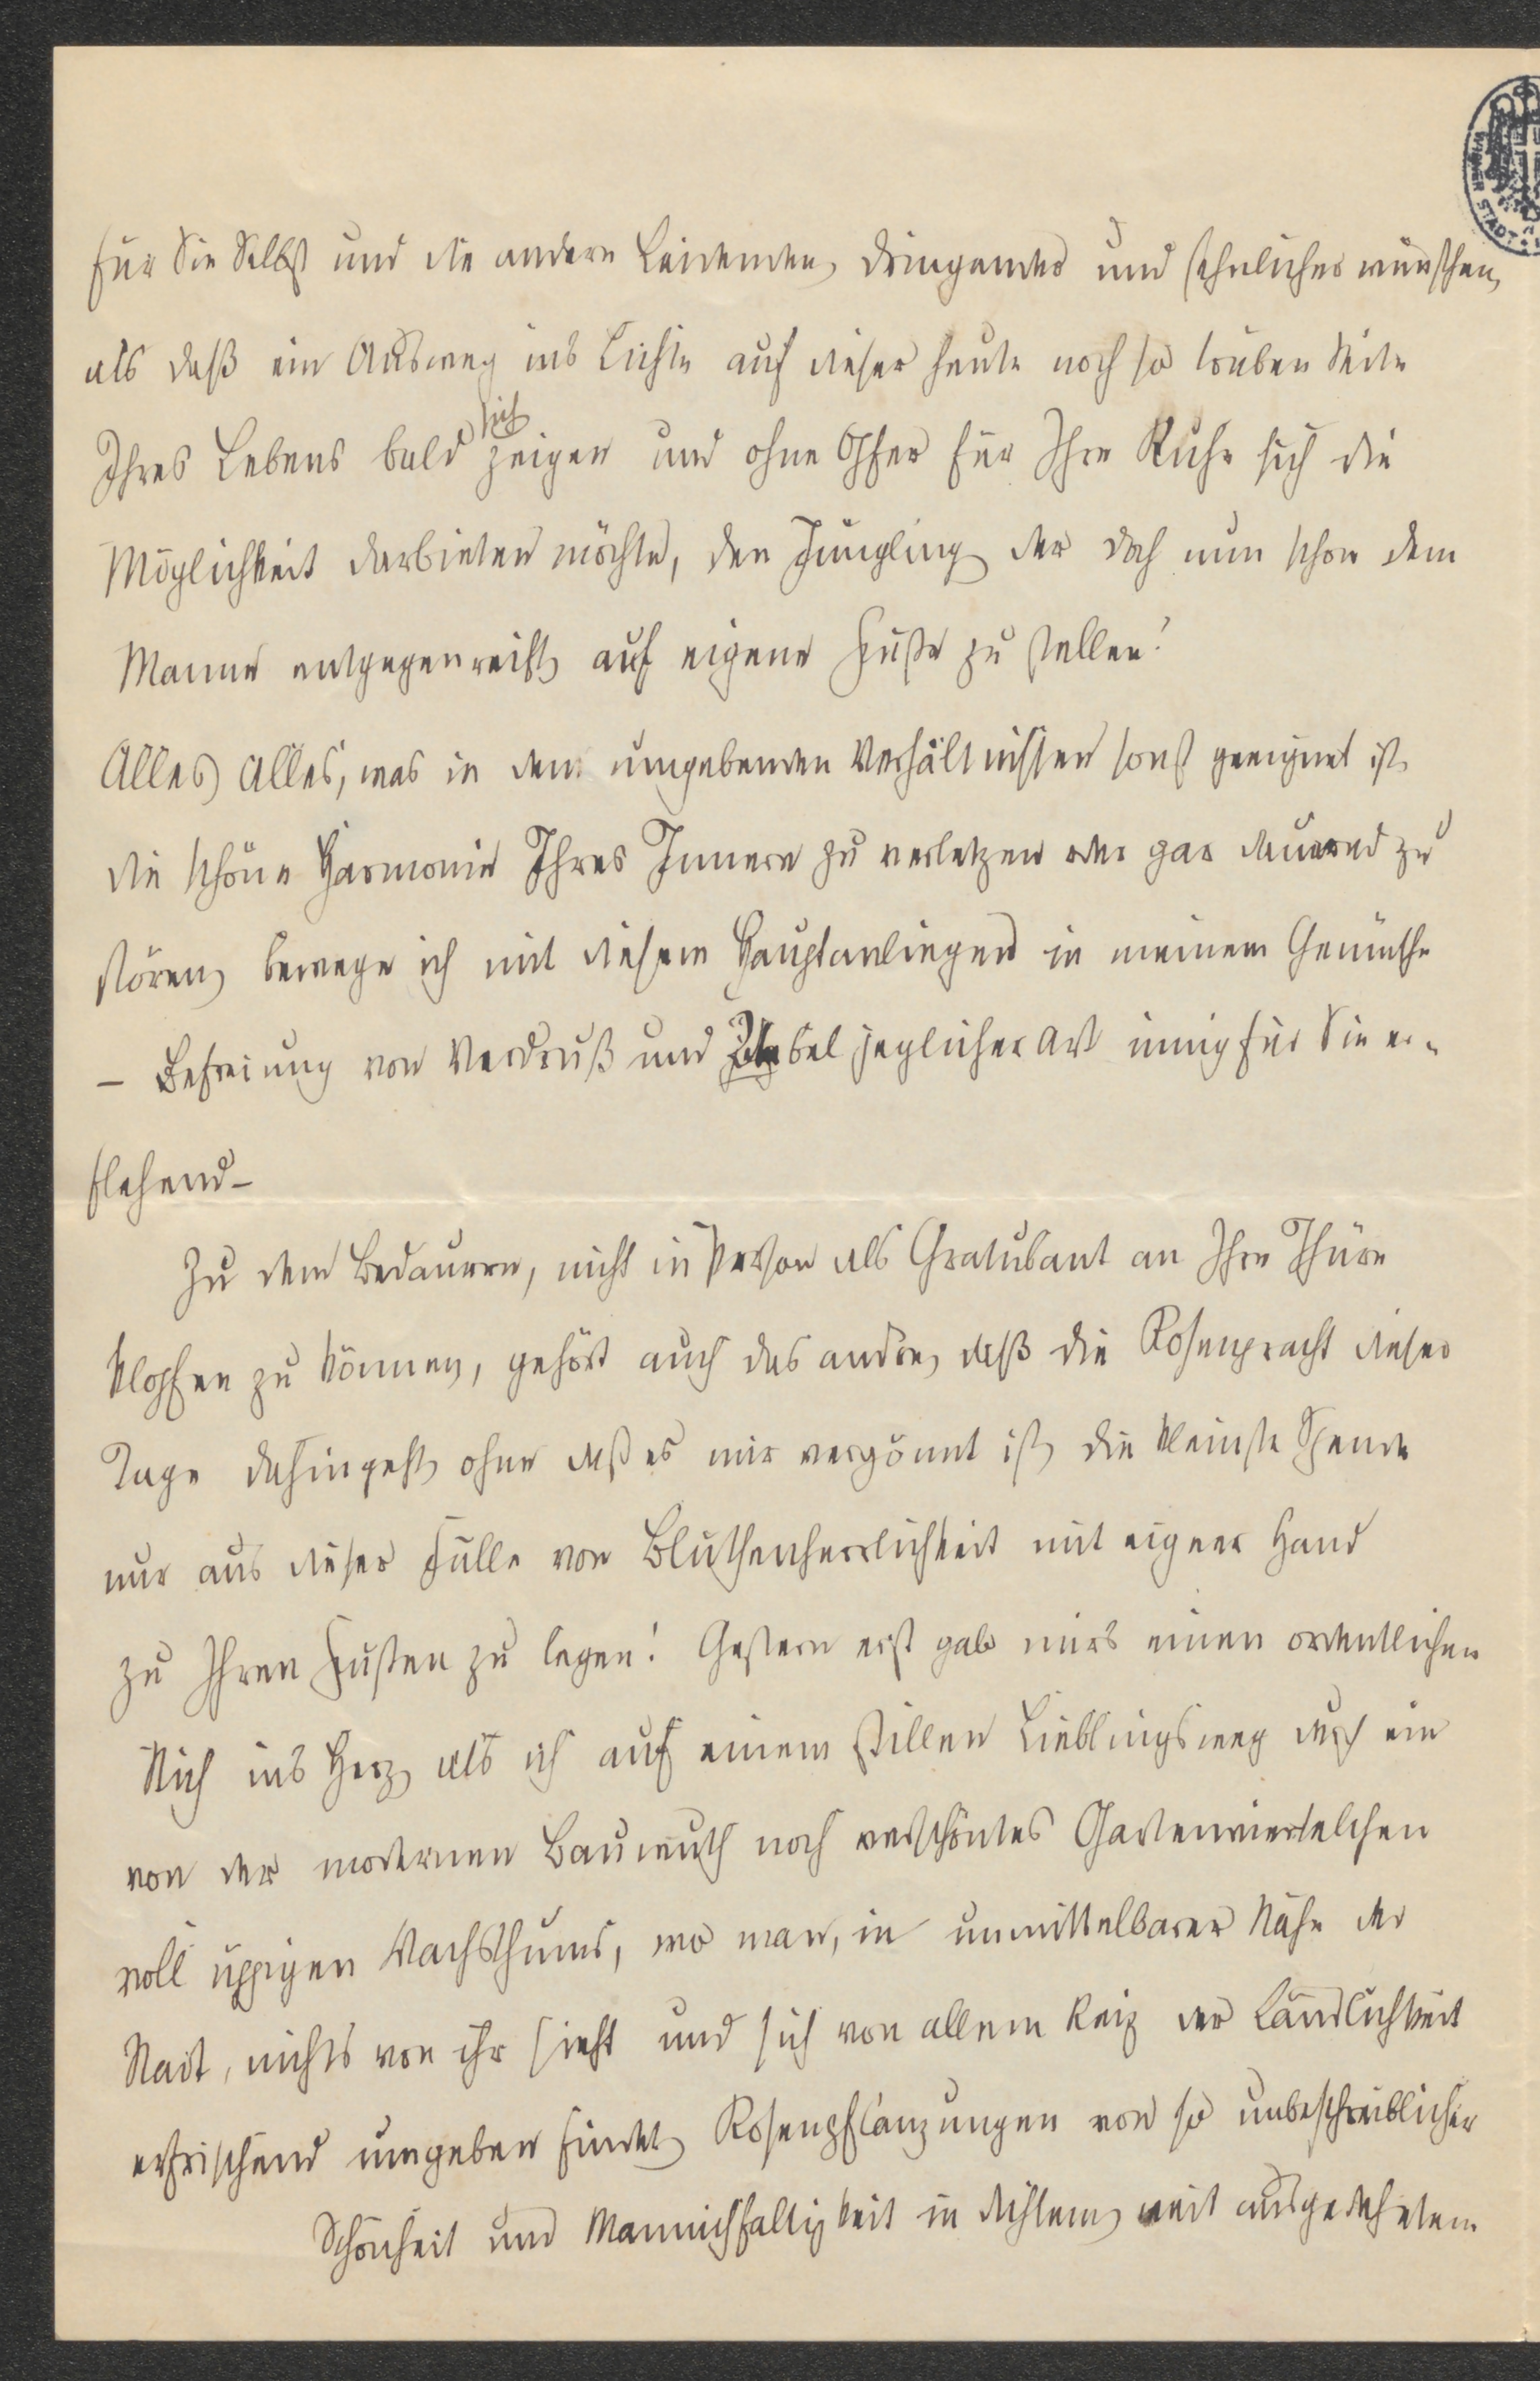 für Sie Selbst und die andern Leidenden, dringender und sehnlicher wünschen,
als daß ein Ausweg ins Lichte auf dieser heute noch so trüben Seite
sich
Ihres Lebens bald zeigen und ohne Opfer für Ihre Ruhe sich die
Möglichkeit darbieten möchte, den Jüngling, der doch nun schon dem
Manne entgegenreift, auf eigene Füße zu stellen!
Alles, Alles, was in den umgebenden Verhältnissen sonst geeignet ist,
die schöne Harmonie Ihres Innern zu verletzen oder gar dauernd zu
stören, bewege ich mit diesem Hauptanliegen in meinem Gemüthe
– Befreiung von Verdruß und Uebel jeglicher Art innig für Sie er-
flehend –
Zu dem Bedauern, nicht in Person als Gratulant an Ihre Thüre
klopfen zu können, gehört auch das andre, daß die Rosenpracht dieser
Tage dahingeht, ohne daß es mir vergönnt ist, die kleinste Spende
nur aus dieser Fülle von Blüthenherrlichkeit mit eigner Hand
zu Ihren Füßen zu legen! Gestern erst gab mirs einen ordentlichen
Stich ins Herz, als ich auf einem stillen Lieblingsweg durch ein
von der modernen Bauwuth noch verschontes Gartenviertelchen
voll üppigen Wachsthums, wo man, in unmittelbarer Nähe der
Stadt, nichts von ihr sieht und sich von allem Reiz der Ländlichkeit
erfrischend umgeben findet, Rosenpflanzungen von so unbeschreiblicher
Schönheit und Mannichfaltigkeit in dichtem, weit ausgedehntem